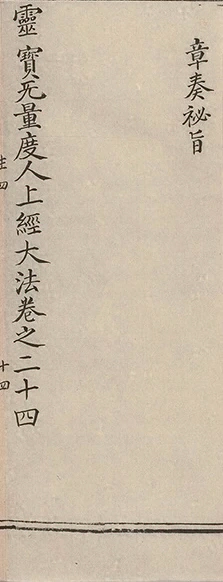 章奏祕旨
靈寶无量度人上經大法卷之二十四
十四